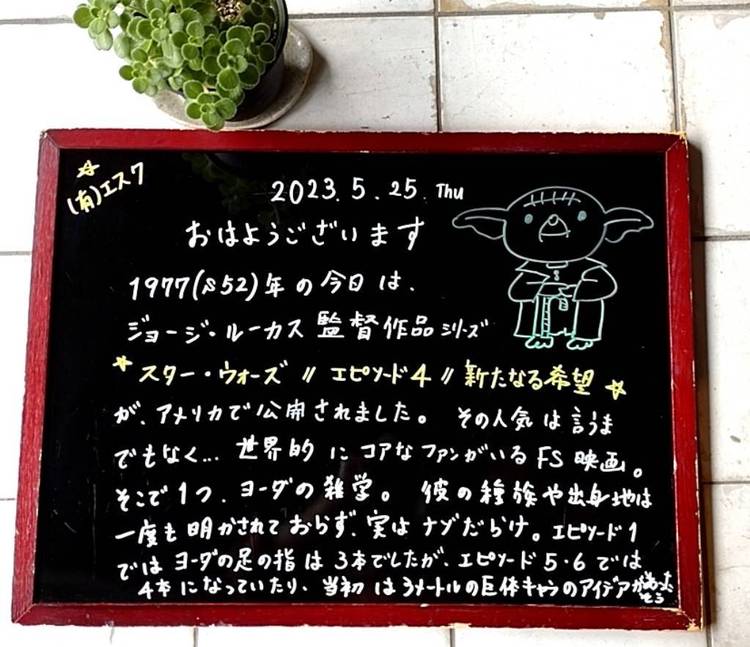 (有)エスワ
2023.5.25.Thu
おはようございます
1977(S52)年の今日は、
ジョージ・ルーカス監督作品シリーズ
☆スター・ウォーズ〃エピソード4〃新たなる希望☆
が、アメリカで公開されました。その人気は言うま
でもなく…世界的にコアなファンがいるFS映画。
そこで1つ、ヨーダの雑学。彼の種族や出身地は
一度も明かされておらず、実はナゾだらけ。エピソード1
ではヨーダの足の指は3本でしたが、エピソード5・6では
4本になっていたり、当初は3メートルの巨体キャラのアイデアがあったそう